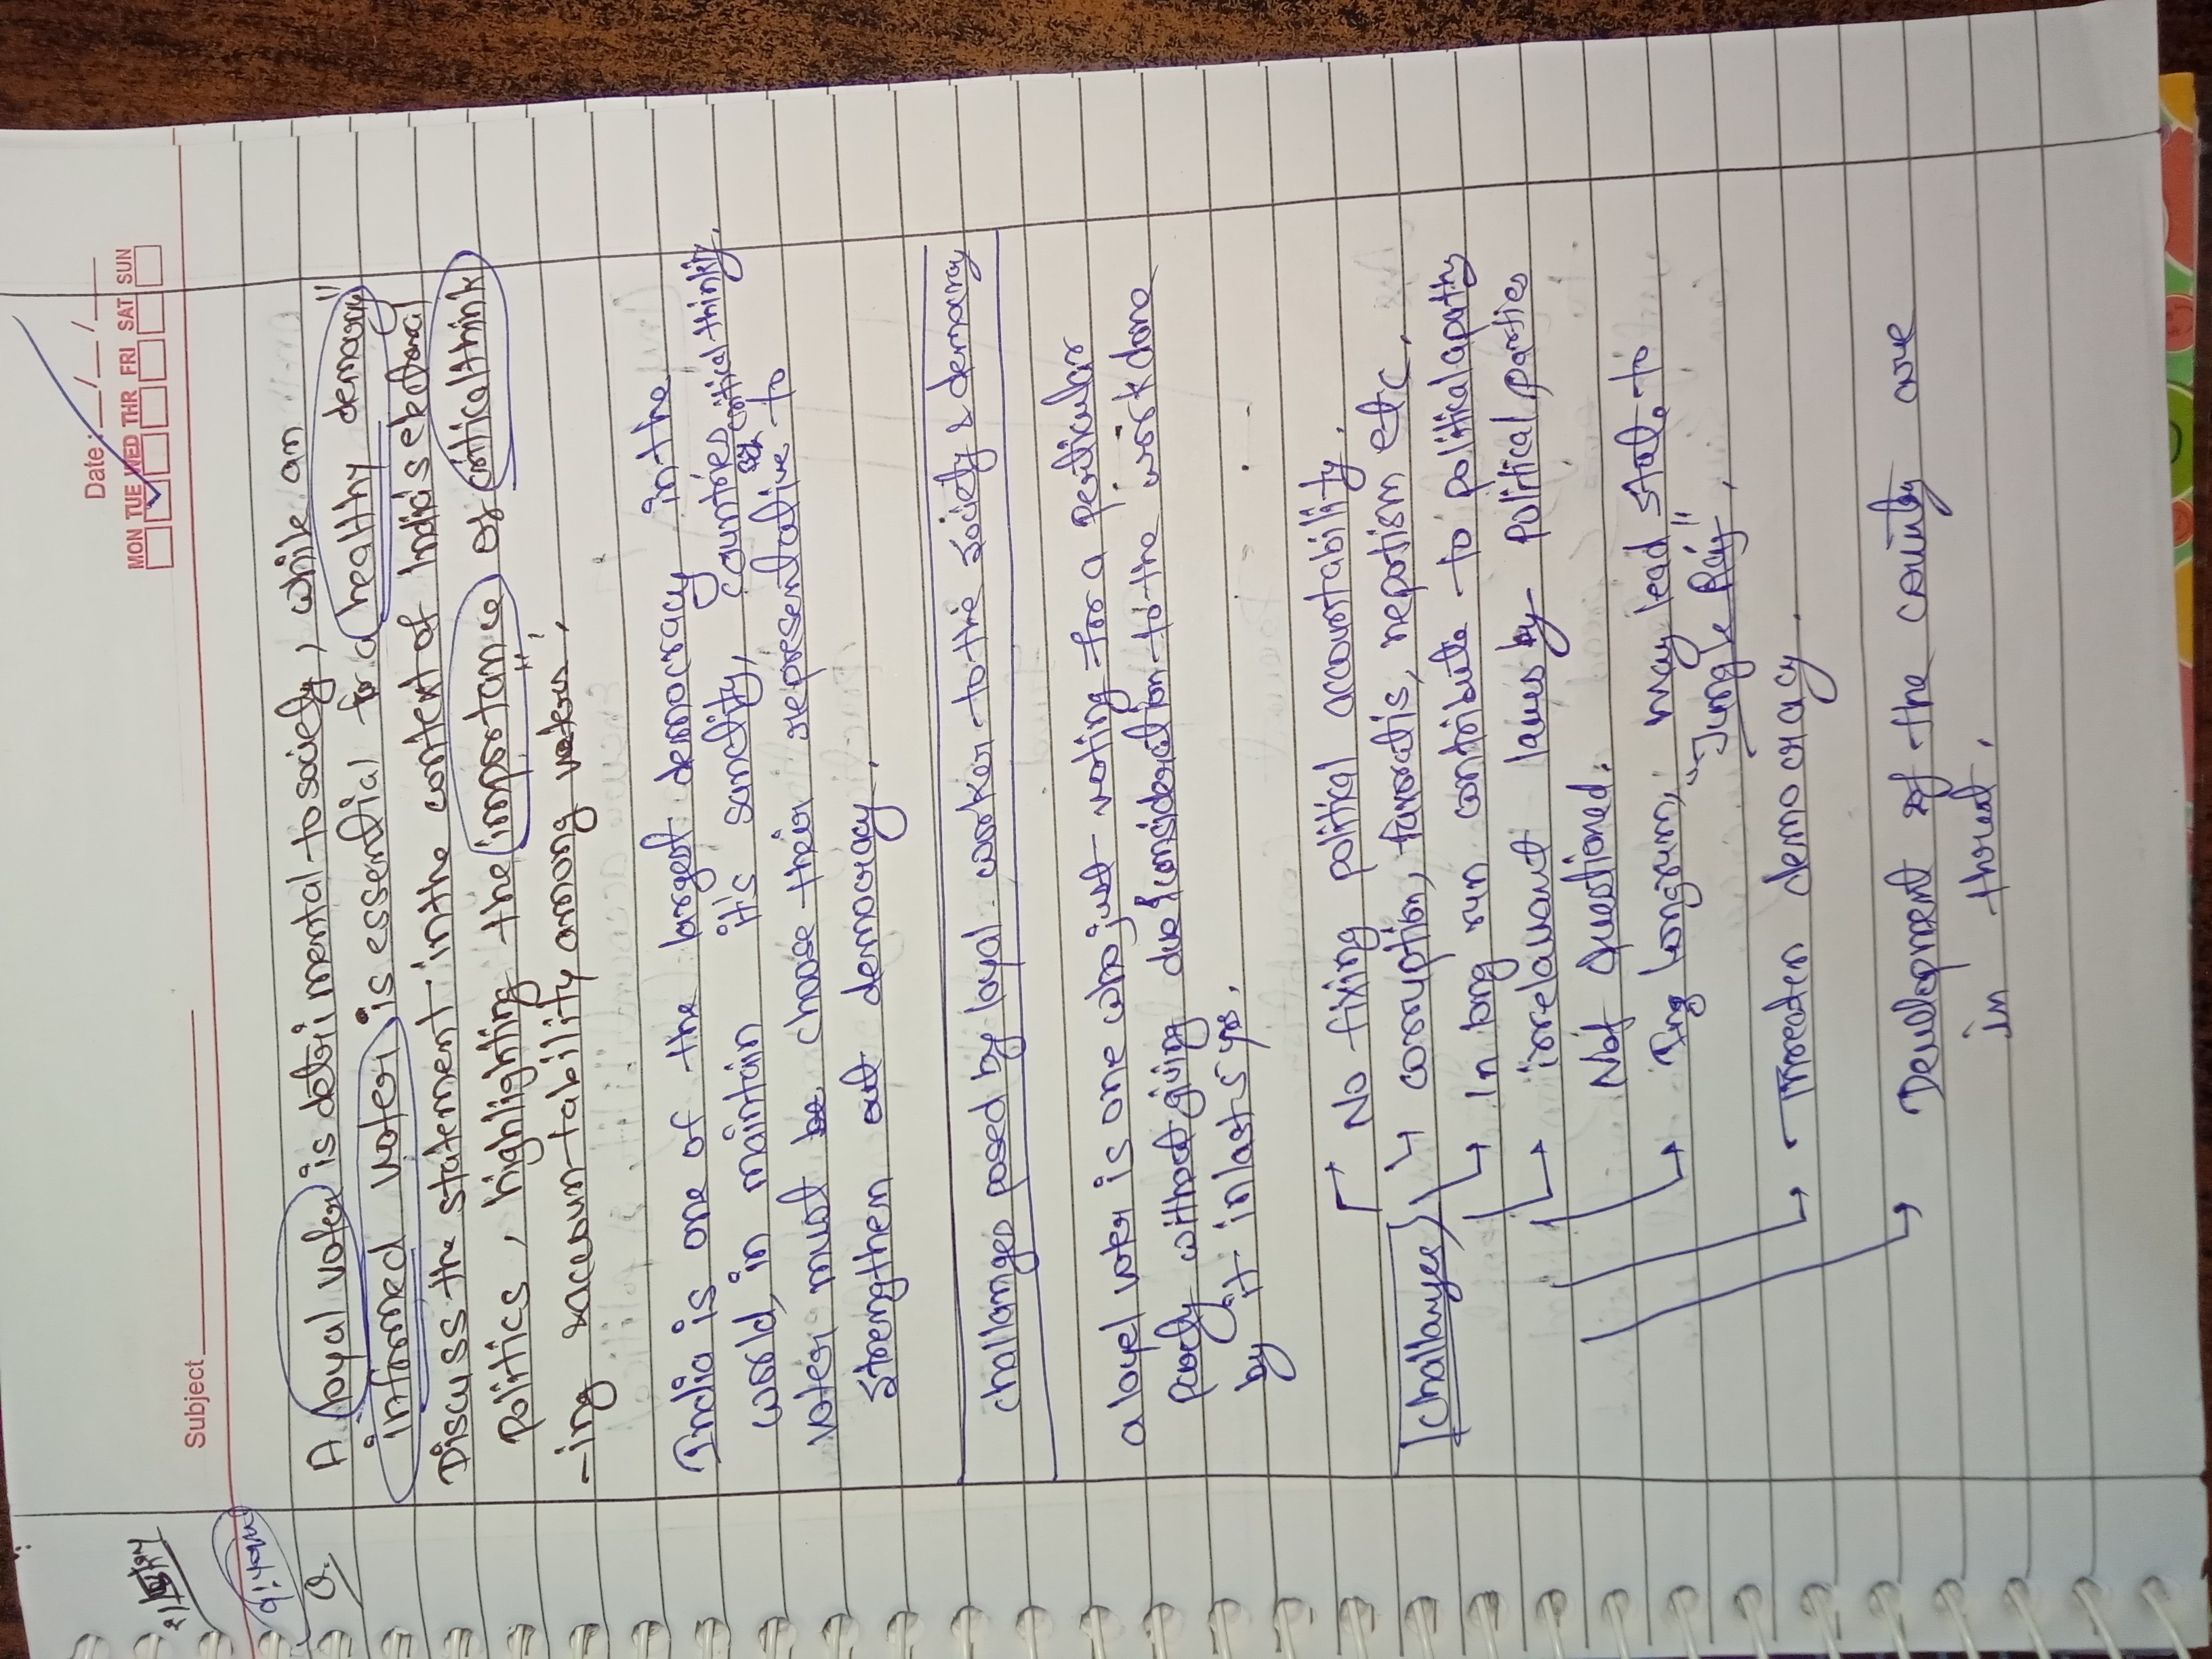 Date: __/__/__
MON TUE WED THR FRI SAT SUN
Subject
9:40am
Q.
A loyal voter is detrimental to society, while an
informed voter is essential for a healthy democracy"
Discuss the statement in the context of India's electoral
Politics, highlighting the importance of critical think
-ing accountability among voters.
India is one of the largest democracy in the
world, in maintain it's sanctity, countries critical thinking,
voter must choose their representative to
strengthen out democracy.
challanges posed by loyal worker to the society & democracy
a loyel voter is one who just voting for a perticular
party without giving due consideration to the work done
by it in last 5 yrs.
No fixing political accountability.
challanges
corruption, favoratis, nepotism etc.
In long run contribute to political apathy
irrelavant laws by political parties
Not Questioned.
Ing longrun, may lead state to
"Jungle Raj".
Threaten democracy.
Development of the country are
in threat.